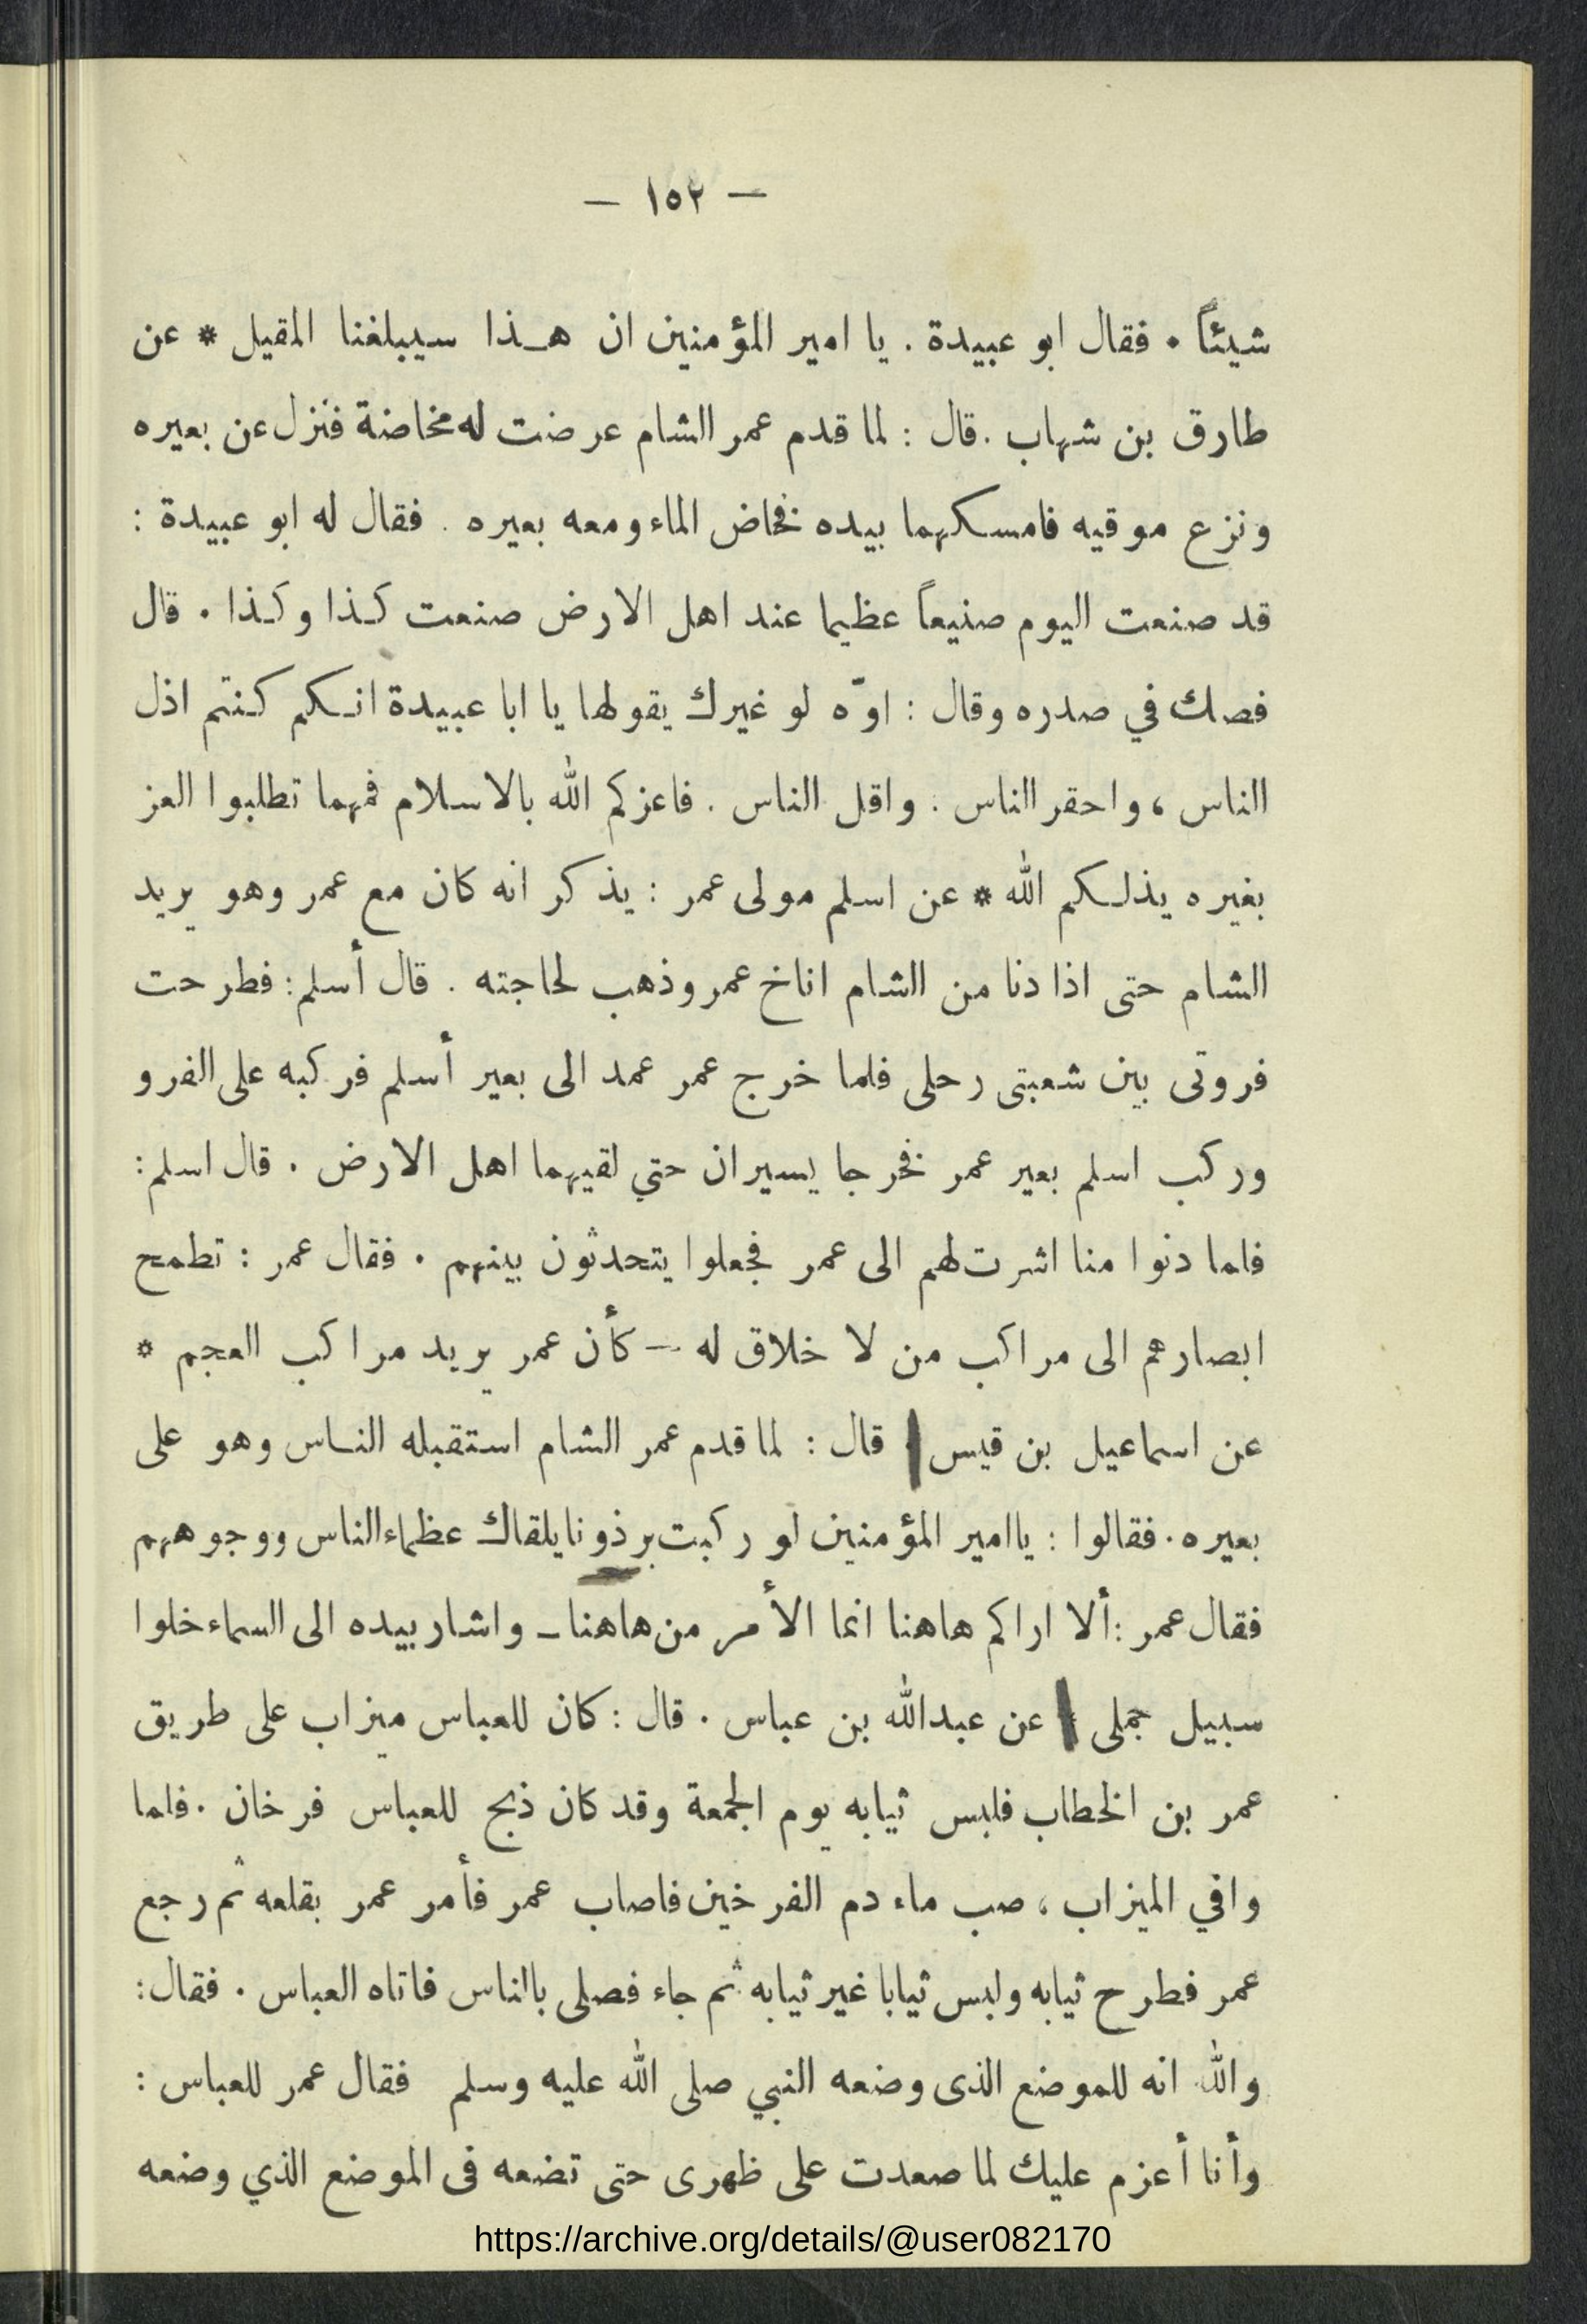 — ١٥٢ —
شيئاً . فقال ابو عبيدة . يا امير المؤمنين ان هـذا سيبلغنا المقيل * عن
طارق بن شهاب . قال : لما قدم عمر الشام عرضت له مخاضة فنزل عن بعيره
ونزع موقيه فامسكهما بيده فخاض الماء ومعه بعيره . فقال له ابو عبيدة :
قد صنعت اليوم صنيعاً عظيما عند اهل الارض صنعت كذا وكذا . قال
فصك في صدره وقال : اوّه لو غيرك يقولها يا ابا عبيدة انكم كنتم اذل
الناس ، واحقر الناس . واقل الناس . فاعزكم الله بالاسلام فمهما تطلبوا العز
بغيره يذلكم الله * عن اسلم مولى عمر : يذكر انه كان مع عمر وهو يريد
الشام حتى اذا دنا من الشام اناخ عمر وذهب لحاجته . قال أسلم : فطرحت
فروتى بين شعبتى رحلى فلما خرج عمر عمد الى بعير أسلم فركبه على الفرو
وركب اسلم بعير عمر فخرجا يسيران حتي لقيهما اهل الارض . قال اسلم :
فلما دنوا منا اشرت لهم الى عمر فجعلوا يتحدثون بينهم . فقال عمر : تطمح
ابصارهم الى مراكب من لا خلاق له — كأن عمر يريد مراكب العجم *
عن اسماعيل بن قيس قال : لما قدم عمر الشام استقبله الناس وهو على
بعيره . فقالوا : يا امير المؤمنين لو ركبت برذونا يلقاك عظماء الناس ووجوههم
فقال عمر : ألا اراكم هاهنا انما الأمر من هاهنا ـ واشار بيده الى السماء خلوا
سبيل جملى عن عبدالله بن عباس . قال : كان للعباس ميزاب على طريق
عمر بن الخطاب فلبس ثيابه يوم الجمعة وقد كان ذبح للعباس فرخان . فلما
وافي الميزاب ، صب ماء دم الفرخين فاصاب عمر فأمر عمر بقلعه ثم رجع
عمر فطرح ثيابه ولبس ثيابا غير ثيابه ثم جاء فصلى بالناس فاتاه العباس . فقال :
والله انه للموضع الذى وضعه النبي صلى الله عليه وسلم فقال عمر للعباس :
وأنا أعزم عليك لما صعدت على ظهرى حتى تضعه فى الموضع الذي وضعه
https://archive.org/details/@user082170